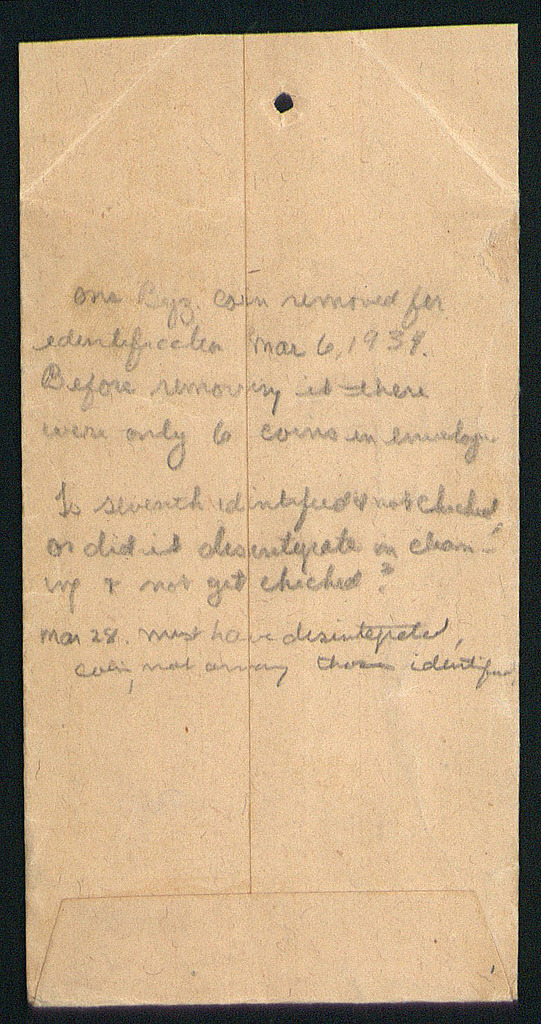 one Byz. coin removed for
identification Mar 6, 1939.
Before removing it there
were only 6 coins in envelope
Is seventh identified & not checked,
or did it desentegrate in clean-
ing & not get checked?
Mar 28. must have desintegrated,
coin, not among those identified,